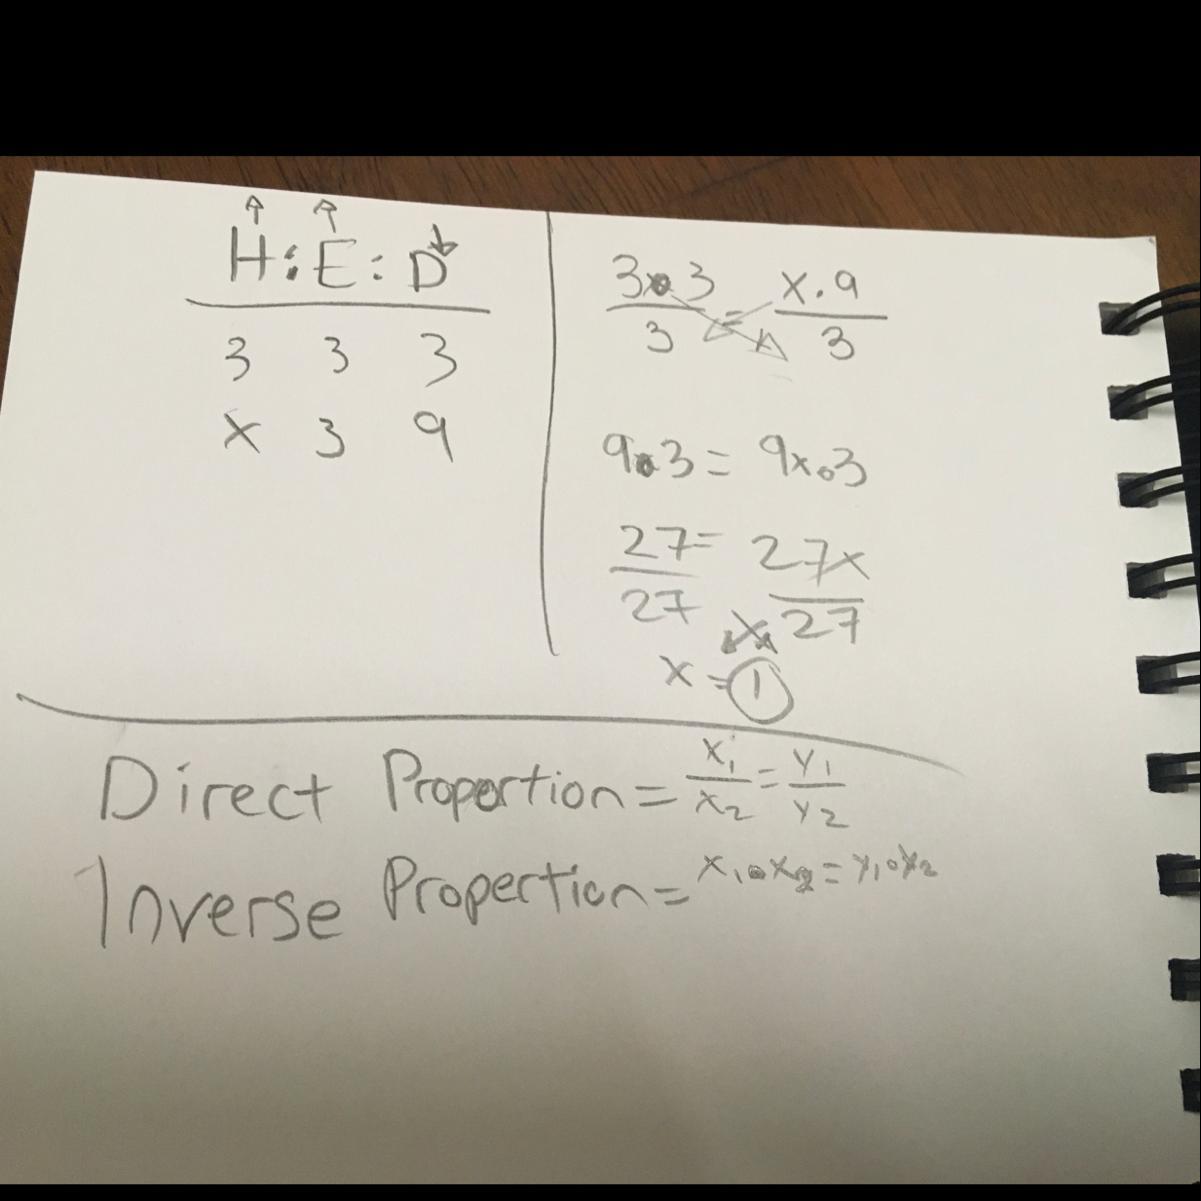 H:E:D
3 3 3
x 3 9
3•3/3 = x.9/3
9•3 = 9x•3
27/27 = 27x/27
x = 1
Direct Proportion = x₁/x₂ = y₁/y₂
Inverse Propertion = x₁•x₂ = y₁•y₂